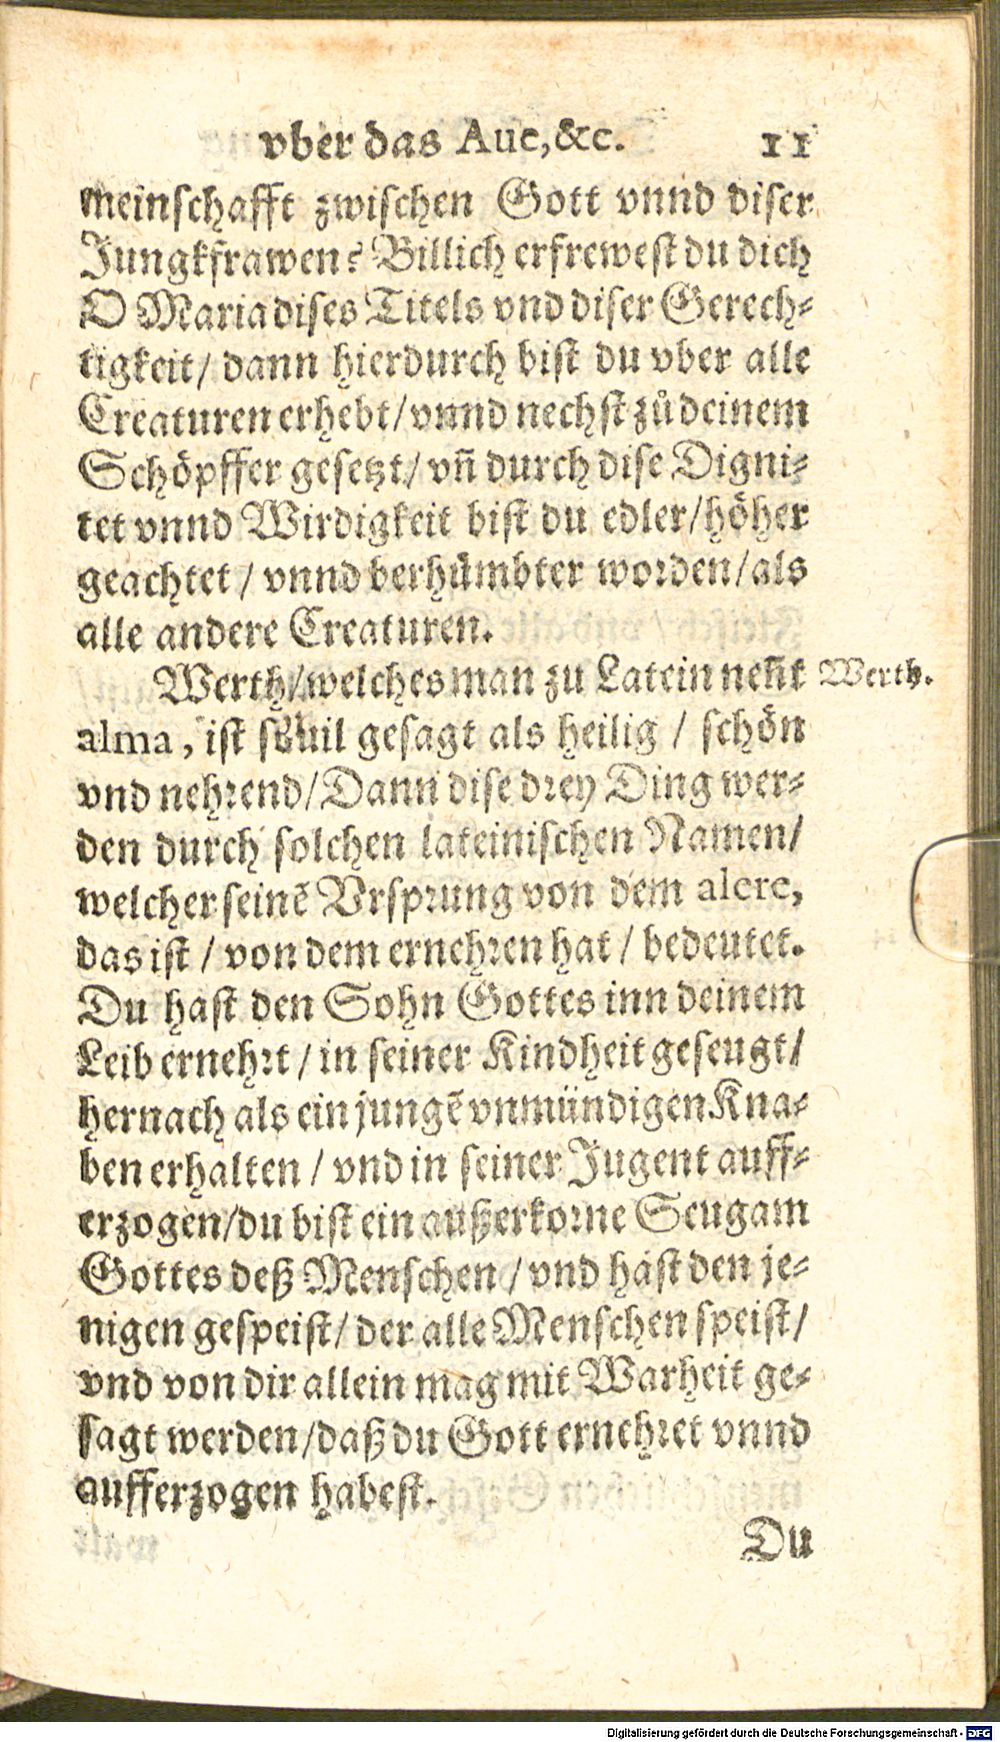 vber das Aue, &c. 11
meinschafft zwischen Gott vnnd diser
Jungkfrawen? Billich erfrewest du dich
O Maria dises Titels vnd diser Gerech-
tigkeit / dann hierdurch bist du vber alle
Creaturen erhebt / vnnd nechst zů deinem
Schöpffer gesetzt / vñ durch dise Digni-
tet vnnd Wirdigkeit bist du edler / höher
geachtet / vnnd berhümbter worden / als
alle andere Creaturen.
Werth / welches man zu Latein neñt
Werth.
alma, ist souil gesagt als heilig / schön
vnd nehrend / Dann dise drey Ding wer-
den durch solchen lateinischen Namen /
welcher seinẽ Vrsprung von dem alere,
das ist / von dem ernehren hat / bedeutet.
Du hast den Sohn Gottes inn deinem
Leib ernehrt / in seiner Kindheit geseugt /
hernach als ein jungẽ vnmündigen Kna-
ben erhalten / vnd in seiner Jugent auff-
erzogen / du bist ein außerkorne Seugam
Gottes deß Menschen / vnd hast den je-
nigen gespeist / der alle Menschen speist /
vnd von dir allein mag mit Warheit ge-
sagt werden / daß du Gott ernehret vnnd
aufferzogen habest.
Du
Digitalisierung gefördert durch die Deutsche Forschungsgemeinschaft - DFG